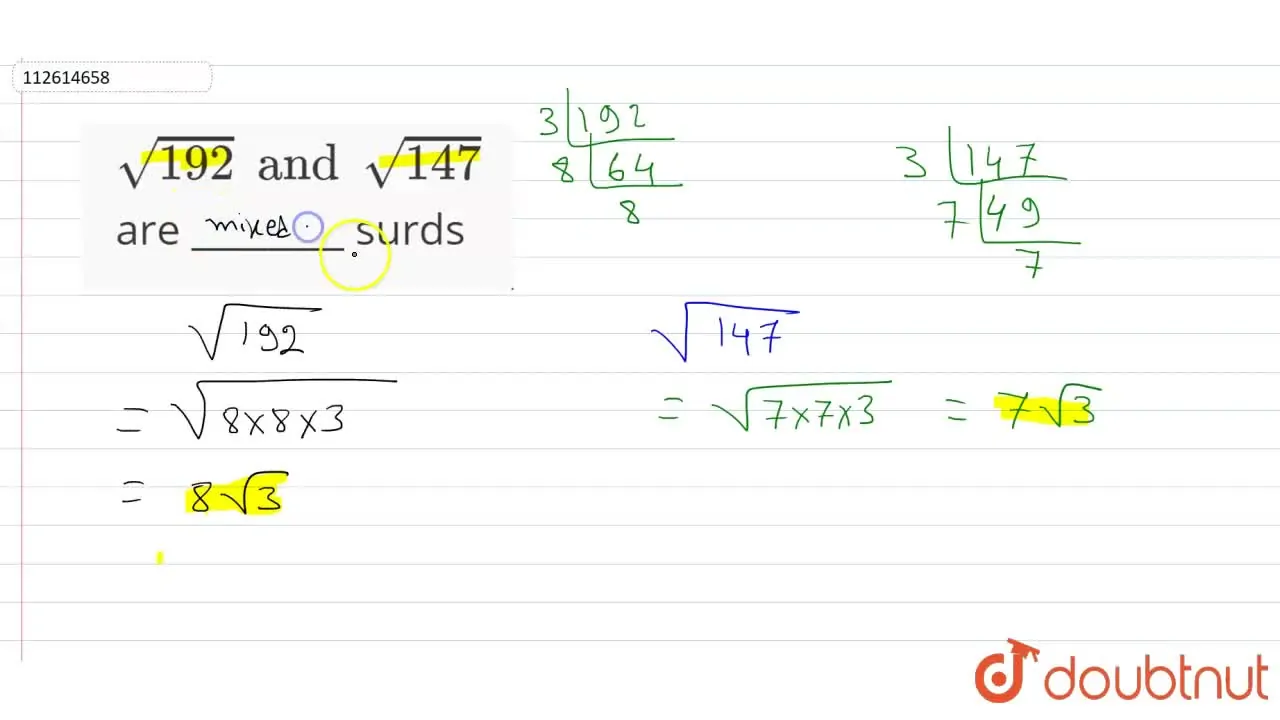 112614658
√192 and √147
are mixed surds
3 192
8 64
8
3 147
7 49
7
√192
= √8×8×3
= 8√3
√147
= √7×7×3 = 7√3
doubtnut